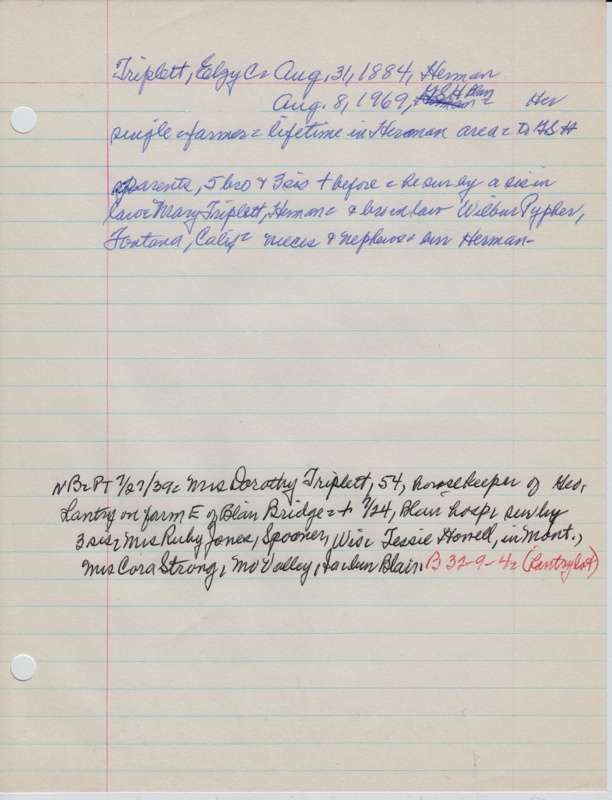 Triplett, Elzy C= Aug, 31, 1884, Herman
GSH Blair
Aug. 8, 1969, Her
single = farmer = lifetime in Herman area = D GSH
parents, 5 bro & 3 sis + before = he sur by a sis in
law = Mary Triplett, Herman = & bro in law Wilbur Pypher,
Fontana, Calif = nieces & nephews = bur Herman-
NB=PT 7/27/39= Mrs Dorothy Triplett, 54, housekeeper of Geo.
Lantry on farm E of Blair Bridge = + 7/24, Blair hosp= sur by
3 sis= Mrs Ruby Jones, Spooner, Wis= Tessie Howell, in Mont.,
Mrs Cora Strong, Mo Valley, Blair. B 32-9-4= (Lantry lot)